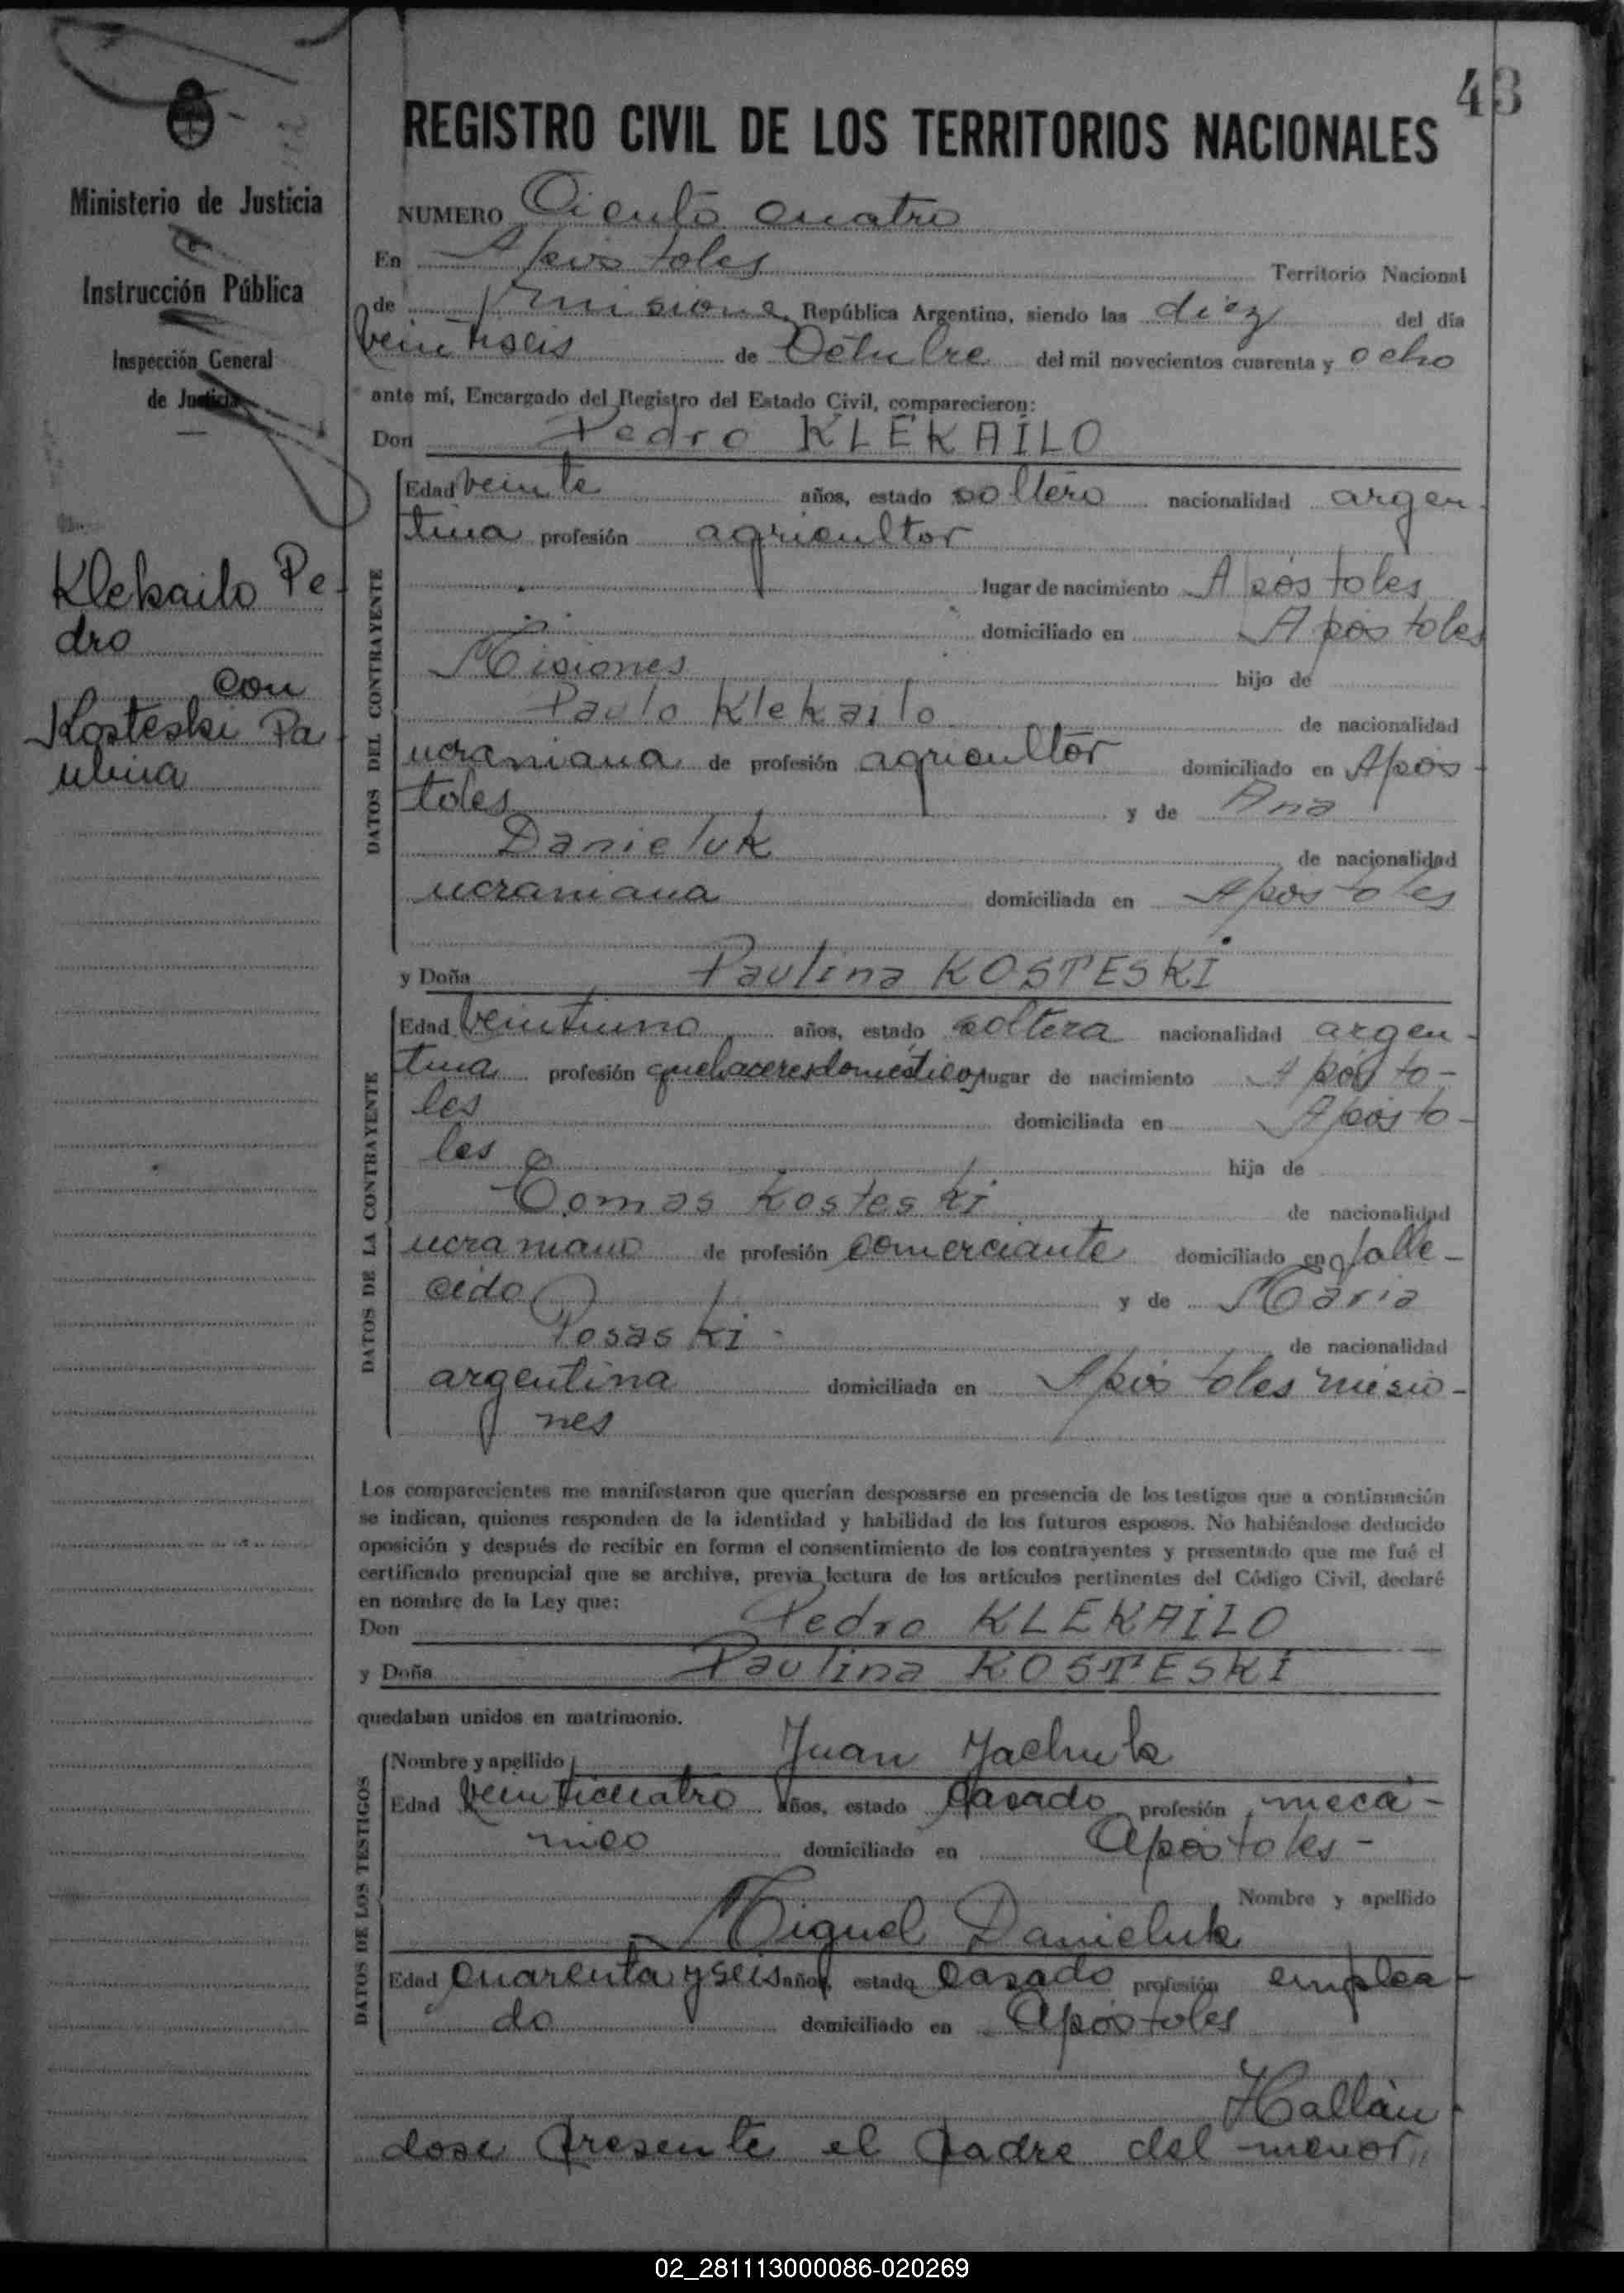 43
REGISTRO CIVIL DE LOS TERRITORIOS NACIONALES
Ministerio de Justicia
e
Instrucción Pública
Inspección General
de Justicia
Klekailo Pe-
dro
con
Kosteski Pa
ulina
NUMERO Ciento cuatro
En Apóstoles Territorio Nacional
de Misiones, República Argentina, siendo las diez del día
veintiseis de Octubre del mil novecientos cuarenta y ocho
ante mí, Encargado del Registro del Estado Civil, comparecieron:
Don Pedro KLEKAILO
DATOS DEL CONTRAYENTE
Edad veinte años, estado soltero nacionalidad argen-
tina profesión agricultor
lugar de nacimiento Apóstoles
domiciliado en Apóstoles
Misiones hijo de
Paulo Klekailo de nacionalidad
ucraniana de profesión agricultor domiciliado en Após-
toles y de Ana
Danieluk de nacionalidad
ucraniana domiciliada en Apóstoles
y Doña Paulina KOSTESKI
DATOS DE LA CONTRAYENTE
Edad veintiuno años, estado soltera nacionalidad argen-
tina profesión quehaceres domésticos lugar de nacimiento Apósto-
les domiciliada en Apósto-
les hija de
Tomas Kosteski de nacionalidad
ucraniano de profesión comerciante domiciliado en falle-
cido y de Maria
Posaski - de nacionalidad
argentina domiciliada en Apóstoles misio-
nes
Los comparecientes me manifestaron que querían desposarse en presencia de los testigos que a continuación
se indican, quienes responden de la identidad y habilidad de los futuros esposos. No habiéndose deducido
oposición y después de recibir en forma el consentimiento de los contrayentes y presentado que me fué el
certificado prenupcial que se archiva, previa lectura de los artículos pertinentes del Código Civil, declaré
en nombre de la Ley que:
Don Pedro KLEKAILO
y Doña Paulina KOSTESKI
quedaban unidos en matrimonio.
DATOS DE LOS TESTIGOS
Nombre y apellido Juan Jachuk
Edad veinticuatro años, estado casado profesión mecá-
nico domiciliado en Apóstoles -
Nombre y apellido
Miguel Danieluk
Edad cuarenta y seis años, estado casado profesión emplea-
do domiciliado en Apóstoles
Hallán-
dose presente el padre del menor,,
02_281113000086-020269